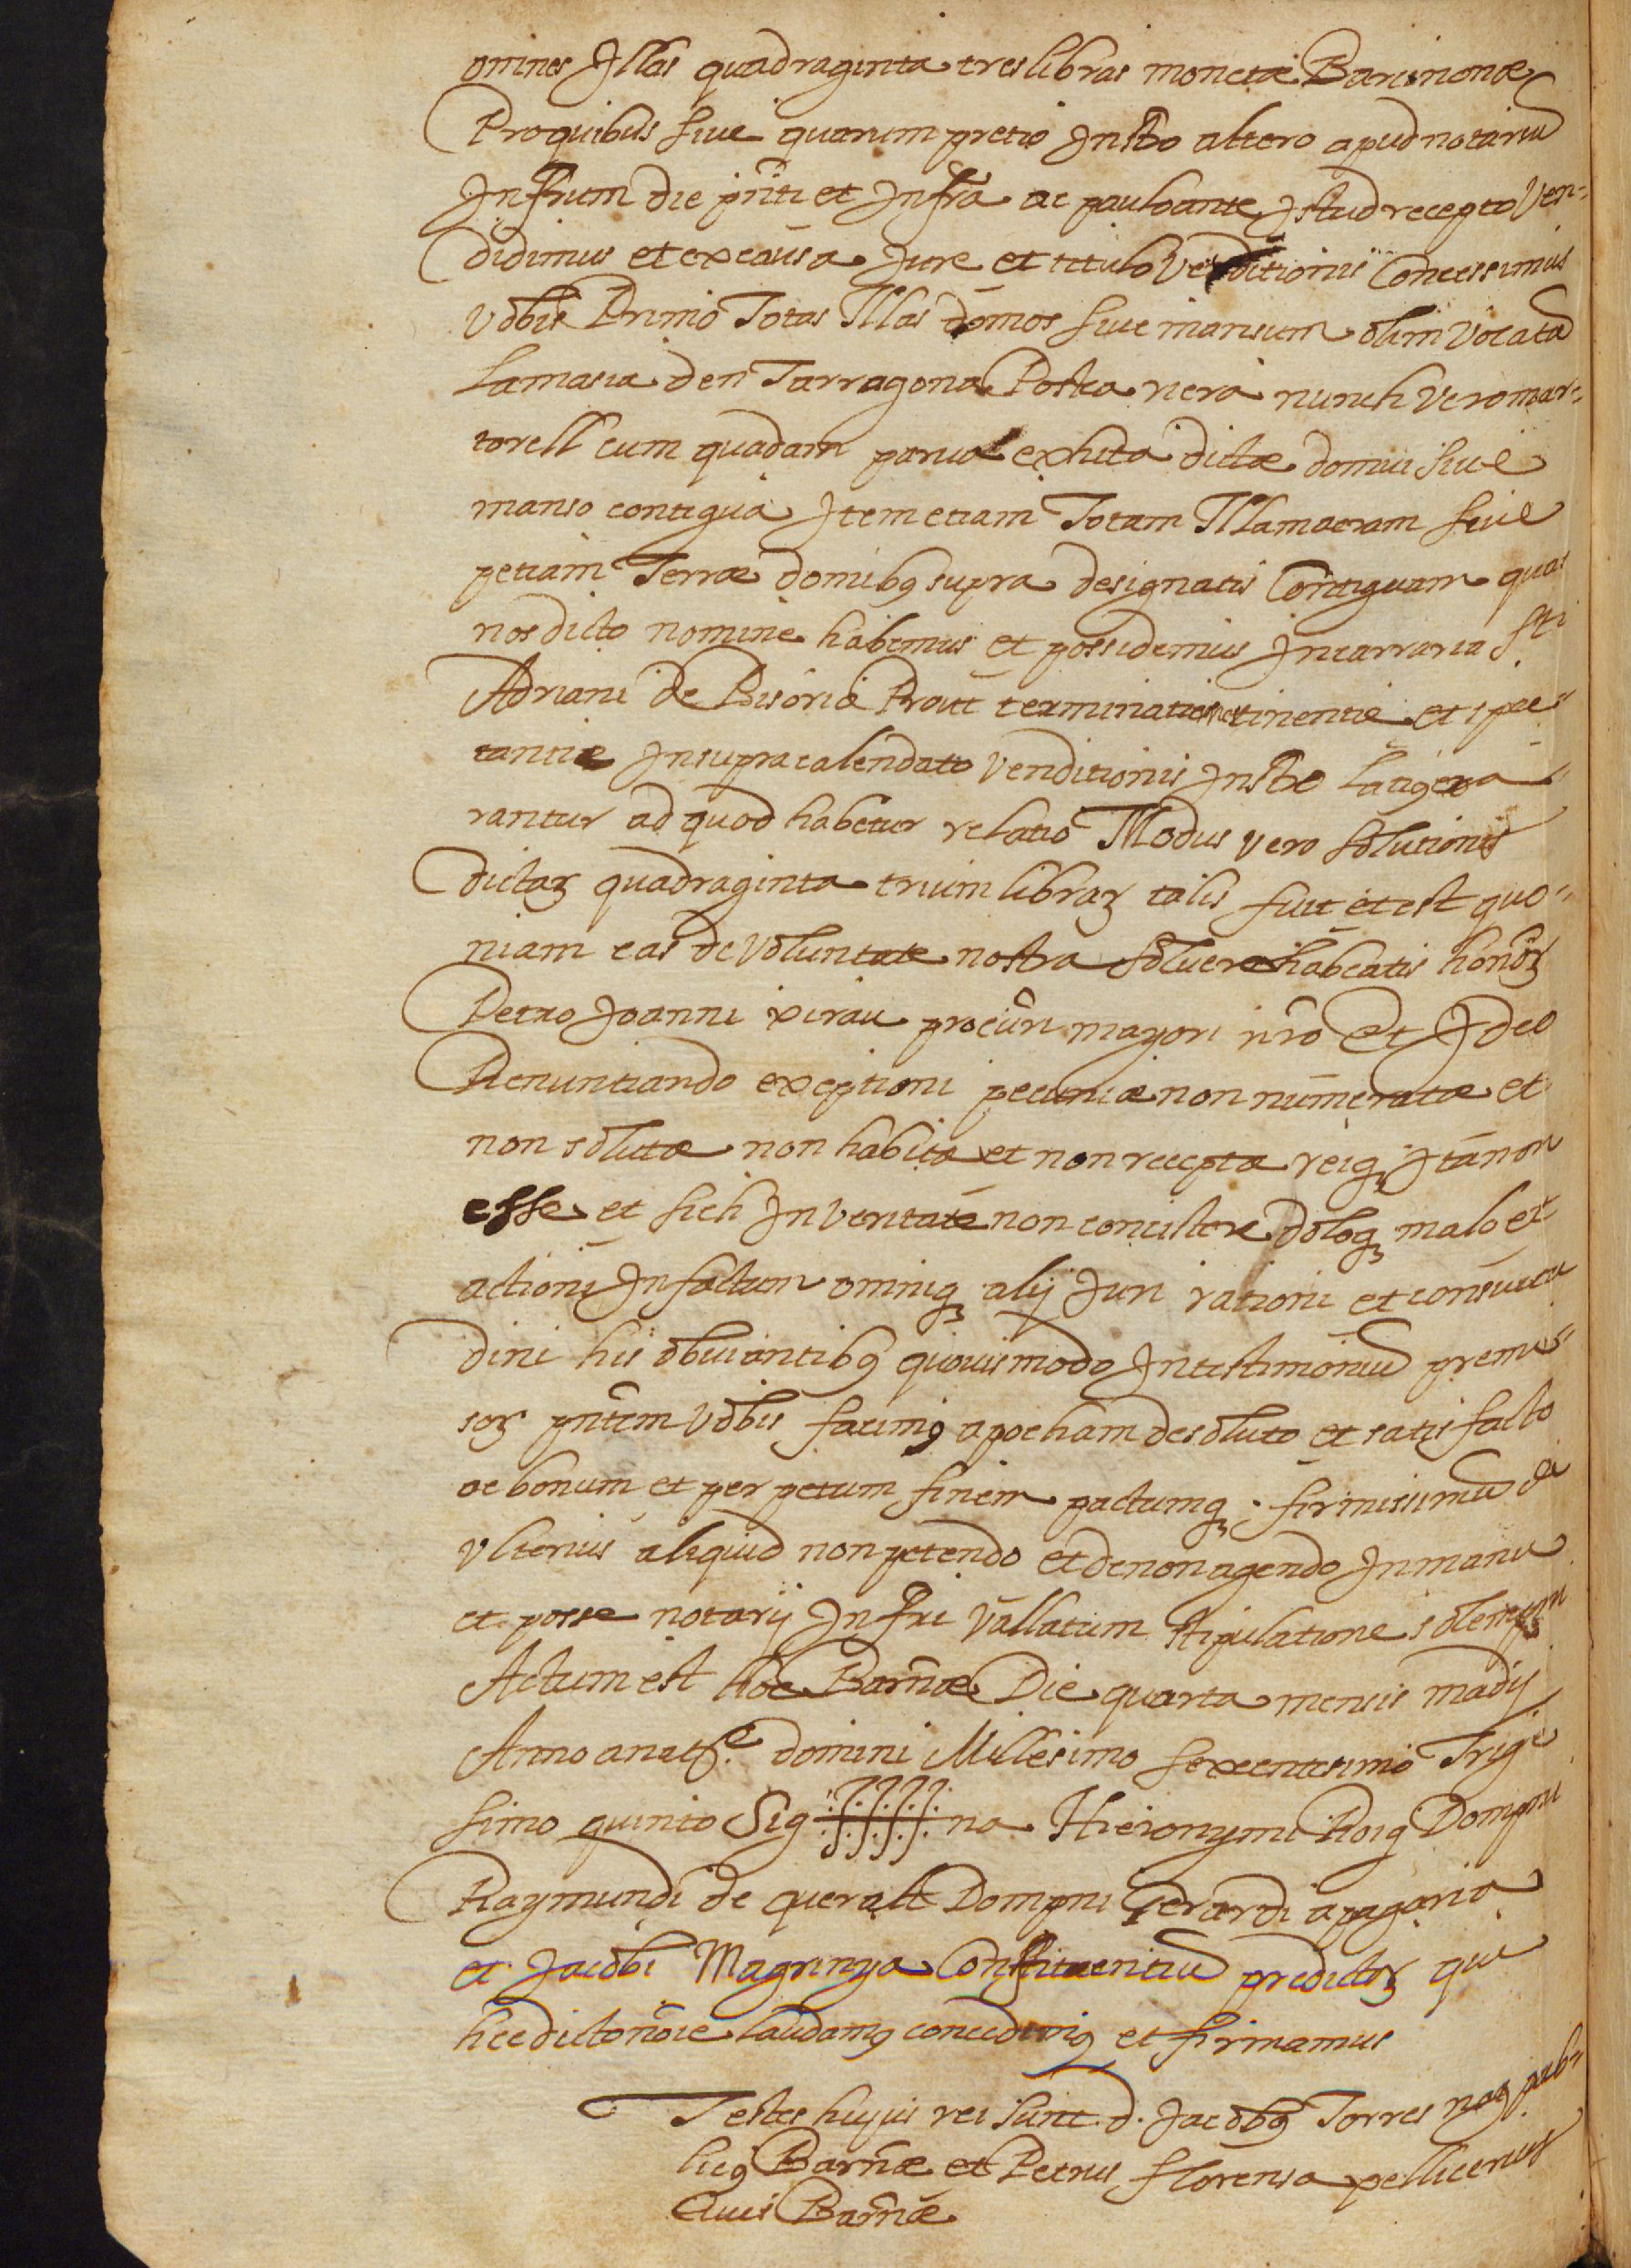 omnes Illas quadraginta tres libras monetæ Barcinonæ
Pro quibus sive quarum pretio Instro altero apud notariũ
Infrum die pñti et Infra ac paulo ante Istud recepto Ven-
didimus et ex causa Jure et titulo Venditionis Concessimus
Vobis Primo Totas Illas domos sive mansum olim Vocatã
La masia den Tarragona Postea riera nunch Vero mar-
torell cum quadam parva exhita dictæ domui sive
manso contigua Item etiam Totam Illam acram sive
petiam Terræ domibꝯ supra designatis Contiguam quas
nos dicto nomine habemus et possidemus In carraria Sti
Adriani de Bisoris Prout terminatur tinentiæ et spec-
tantiæ In supra calendato Venditionis Instro
rantur ad quod habetur relatio Modus vero solutionis
dictaꝝ quadraginta trium libraꝝ talis fuit et est quo-
niam eas de Voluntate nostra solvere habeatis honoꝝ
Petro Joanni xirau procuri mayori nro Et Ideo
Renuntiando exceptioni pecuniæ non numeratæ et
non solutæ non habitæ et non receptæ reiqꝫ Ita non
esse et sich In Veritate non concistere doloqꝫ malo et
actioni In factum omniqꝫ alij Juri rationi et consuetu
dini his obviantibꝯ quovismodo In testimoniũ premis-
soꝝ pñtem Vobis facimꝯ apocham de soluto et satisfacto
ac bonum et perpetum finem pactumqꝫ firmissimũ de
Vlterius aliquid non petendo et de non agendo In manu
et posse notarij Infri Vallatum stipulatione solempni
Actum est hoc Barñæ Die quarta mensis madij
Anno a natte domini Millesimo sexcentesimo Trige
simo quinto Sig na Hieronymi Roig Dompni
Raymundi de queralt Dompni Gerardi apagaria
et Jacobi Magrinya Constituentiũ predictoꝝ qui
hec dicto nõie laudamꝯ concedimꝯ et firmamus
Testes hujus rei sunt d. Jacobꝯ Torres noꝯ pub-
licꝯ Barñæ et Petrus florensa pellicerius
Civis Barñæ